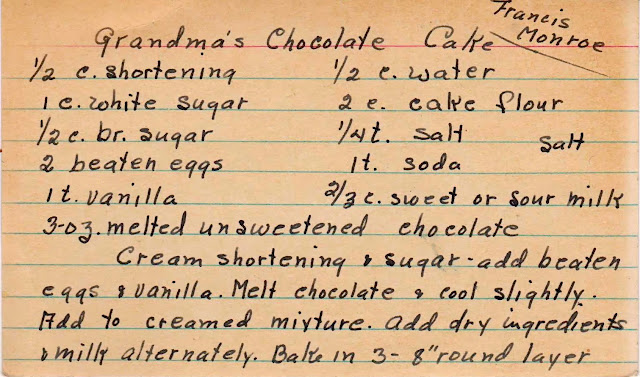 Francis
Monroe
Grandma's Chocolate Cake
1/2 c. shortening 1/2 c. water
1 c. white sugar 2 c. cake flour
1/2 c. br. sugar 1/4 t. salt salt
2 beaten eggs 1 t. soda
1 t. vanilla 2/3 c. sweet or sour milk
3-oz. melted unsweetened chocolate
Cream shortening & sugar - add beaten
eggs & vanilla. Melt chocolate & cool slightly.
Add to creamed mixture. Add dry ingredients
& milk alternately. Bake in 3- 8" round layer